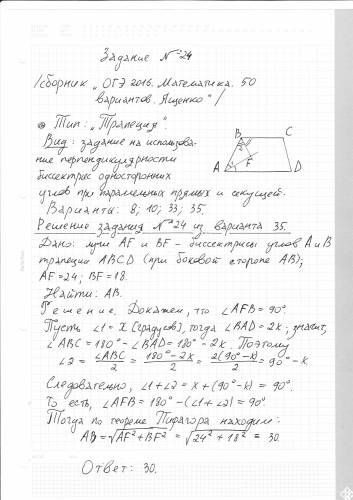 Задание № 24
/сборник „ОГЭ 2016. Математика. 50
вариантов. Ященко"/
Тип: „Трапеция".
Вид: задание на использова-
ние перпендикулярности
биссектрис односторонних
углов при параллельных прямых и секущей.
B C
2
1 F
A D
Варианты: 8; 10; 33; 35.
Решение задания № 24 из варианта 35.
Дано: лучи AF и BF - биссектрисы углов A и B
трапеции ABCD (при боковой стороне AB);
AF = 24; BF = 18.
Найти: AB.
Решение. Докажем, что ∠AFB = 90°.
Пусть ∠1 = x (градусов), тогда ∠BAD = 2x; значит,
∠ABC = 180° - ∠BAD = 180° - 2x. Поэтому
∠2 = ∠ABC/2 = 180° - 2x/2 = 2(90° - x)/2 = 90° - x
Следовательно, ∠1 + ∠2 = x + (90° - x) = 90°.
То есть, ∠AFB = 180° - (∠1 + ∠2) = 90°
Тогда по теореме Пифагора находим:
AB = √AF² + BF² = √24² + 18² = 30.
Ответ: 30.